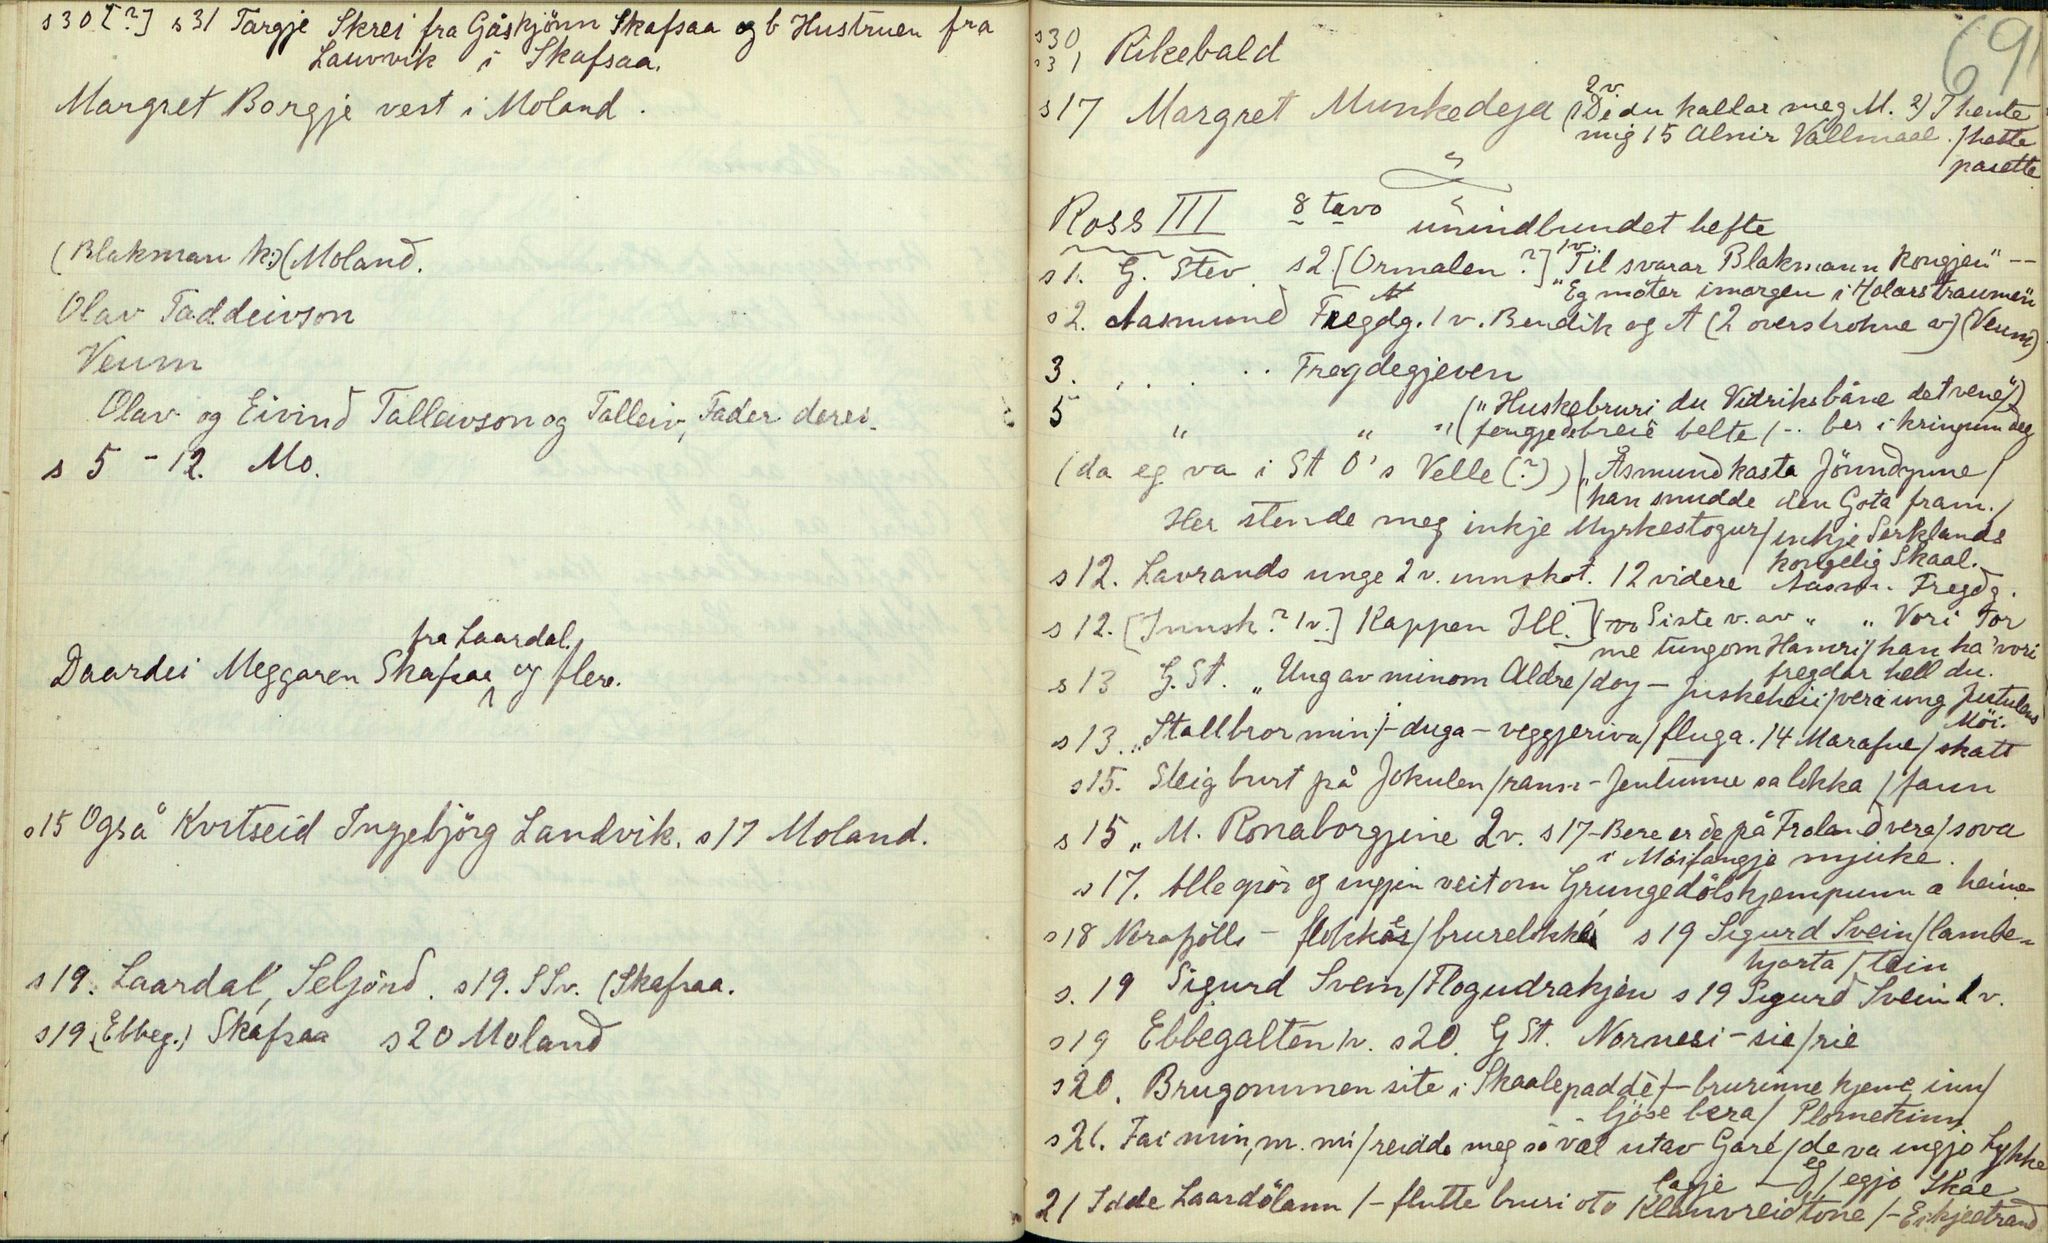 s 30 [?] s 31 Targje Skrei fra Gåskjönn Skafsaa og b Hustruen fra
Lauvvik i Skafsaa.
Margret Borgje vest i Moland.
(Blakman k:)(Moland.
Olav Taddeivson
Veum
Olav og Eivind Talleivson og Talleiv, Fader deres.
s 5 - 12. Mo.
fra Laardal.
Daardei Meggaren Skafsaa og flere.
s 15 Også Kvitseid Ingjebjörg Landvik. s 17 Moland.
s 19. Laardal, Seljord. s 19. S Sv. (Skafsaa.
s 19 (Ebbeg.) Skafsaa s 20 Moland
691
s 30
s 31 Rikebald
s 17 Margret Munkedeja 2 v. (1) De du kallar meg M. 2) I hente
mig 15 Alnir Vallmaal. / hatte
pasette
Ross III 8 tavo uinindbundet hefte
s 1. G. Stev s 2. [Ormalen ?] 1 v. "Til svarar Blakmann Kongjen" --
"Eg möter imorgen i Holarstraumen"
s 2. Aasmund Fregdg. 1 v. Bendik og A (2 overstrokne v) (Veum)
3. . . . . . Fregdegjeven
5 " " " ("Huskebruri du Vidriksbåne det vene")
(fengjedebreie belte / -- ber i kringum deg
(da eg va i St O's Velle (?)) ("Åsmund kasta Jönndynne /
han snudde den Gota fram. /
Her stende meg inkje Myrkestogur / inkje Serklands
kongelig Skaal.
s 12. Lavrands unge 2 v. innskot. 12 videre Aasm. Fregdg.
s 12. [Innsk. ? 1 v.] Kappen Ill.] Siste v. av " " Vori Tor
me tungom Hamri / han ha 'vori
fregdar hell du.
s 13 G. St. "Ung av minom Aldre / doy - Juskeheii / vera ung Jutulens
Möi.
s 13. "Stallbror min / - duga - veggjeriva / fluga. 14 Marafue / skatt
s 15. Steig burt på Jokulen / rann - Jentunne sa lokka / fann
s 15 " M. Ronaborgjine 2 v. s 17 - Bere er de på Froland vera / sova
i Möifangje mjuke.
s 17. Alle spör og ingjin veit om Grungedölskjempunn æ heime
s 18 Norafjölls - flokkås / brurelokkå s 19 Sigurd Svein / lambe-
hjarta / lein
s. 19 Sigurd Svein / Flogudrakjen s 19 Sigurd Svein 1 v.
s 19 Ebbegalten 1 v. s 20. G St. Nornesi - sie / rie
s 20. Brugommen site i Skaalepadde / - brurinne kjeme inn /
ljose bera / Plometinn
s 21. Fai min, m. mi / reidde meg so væl utav Gare / de va ingjo Lykke
eg / egjo Skae
21 Idde Laardölann / - flutte bruri oto Klauvreidtone / - Eikjestrand